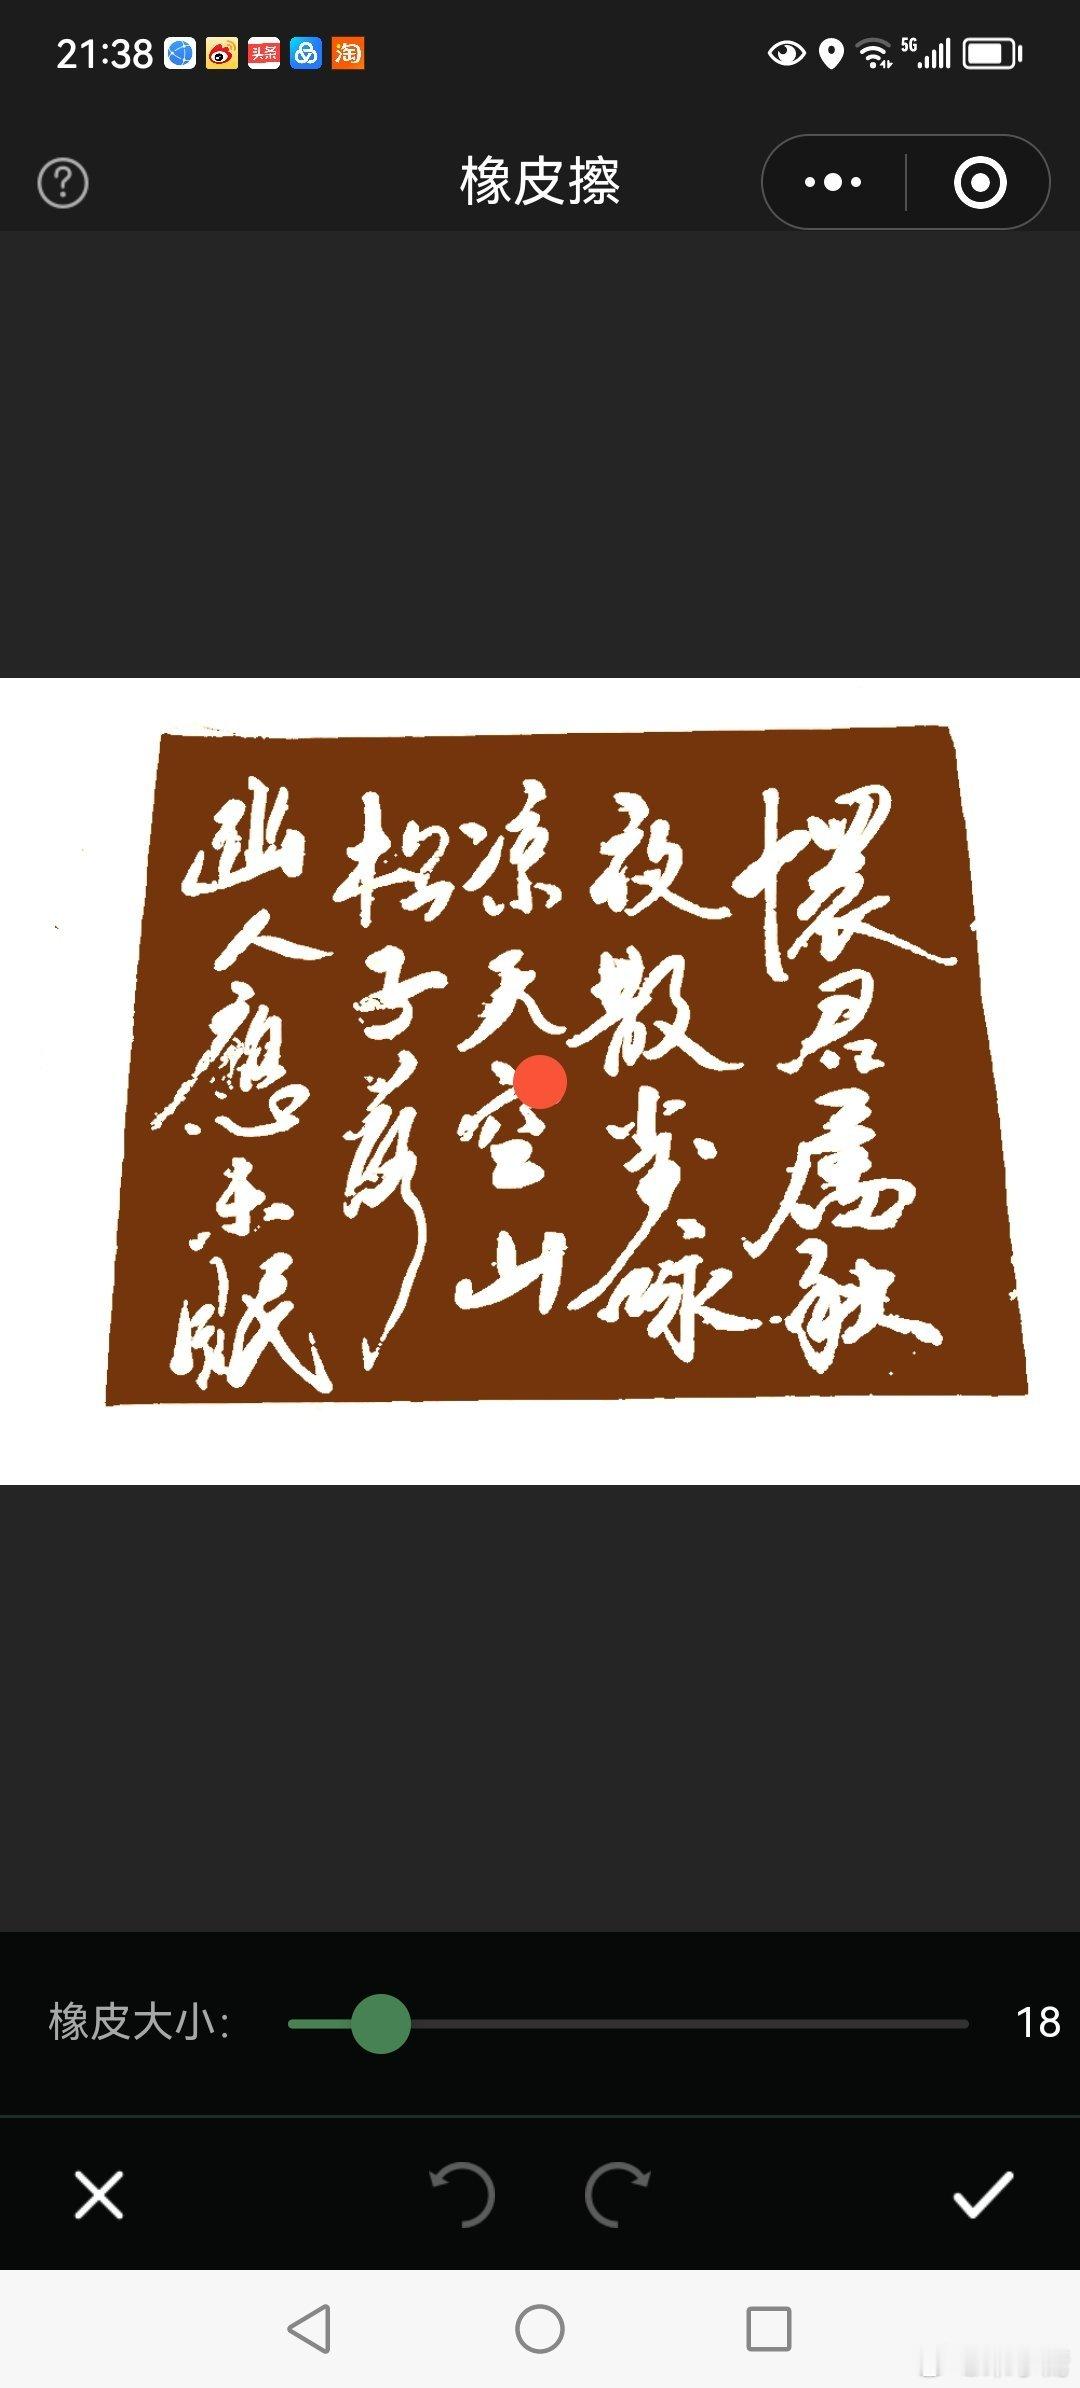 21:38 头条 淘 5G
橡皮擦
懷君属秋
夜散步咏
凉天空山
松子落
幽人應未眠
橡皮大小: 18